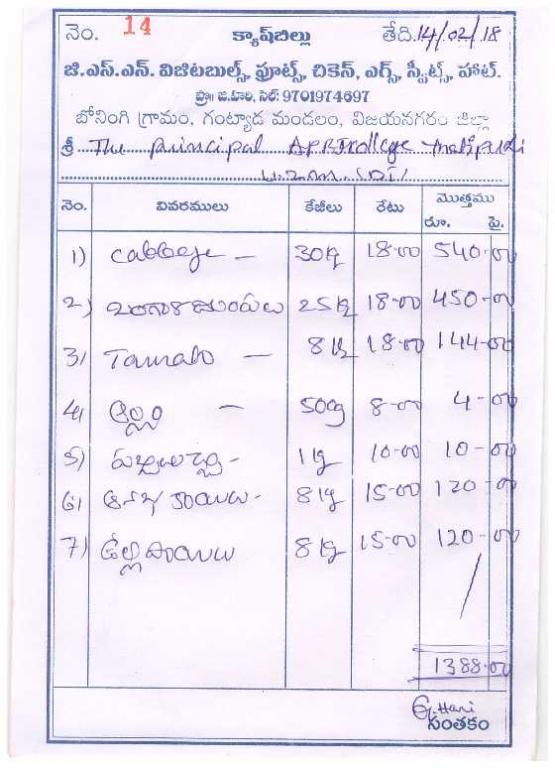 నెం. 14 క్యాష్‌బిల్లు తేది.14/02/18
జి.ఎస్.ఎన్. విజిటబుల్స్, ఫ్రూట్స్, చికెన్, ఎగ్స్, స్వీట్స్, హాట్.
ప్రొ॥ జి.హరి, సెల్: 9701974697
బోనింగి గ్రామం, గంట్యాడ మండలం, విజయనగరం జిల్లా
శ్రీ The principal
నెం. వివరములు కేజీలు రేటు మొత్తము
రూ. పై.
1) cabbege - 30kg 18-00 540-00
2) బంగాళదుంపలు 25kg 18-00 450-00
3) Tamato - 8kg 18-00 144-00
4) అల్లం - 500g 8-00 4-00
5) 1kg 10-00 10-00
6) 8kg 15-00 120-00
7) 8kg 15-00 120-00
1388-00
G.Hari
సంతకం